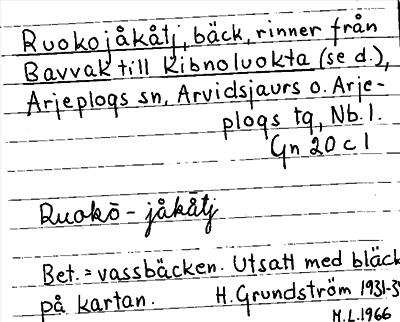 Ruokojåkåtj, bäck, rinner från
Bavvak till Kibnoluokta (se d.),
Arjeplogs sn, Arvidsjaurs o. Arje-
plogs tg, Nb. l.
Gn 20 c 1
Ruokō - jåkåtj
Bet. = vassbäcken. Utsatt med bläck
på kartan. H. Grundström 1931-3
M.L. 1966